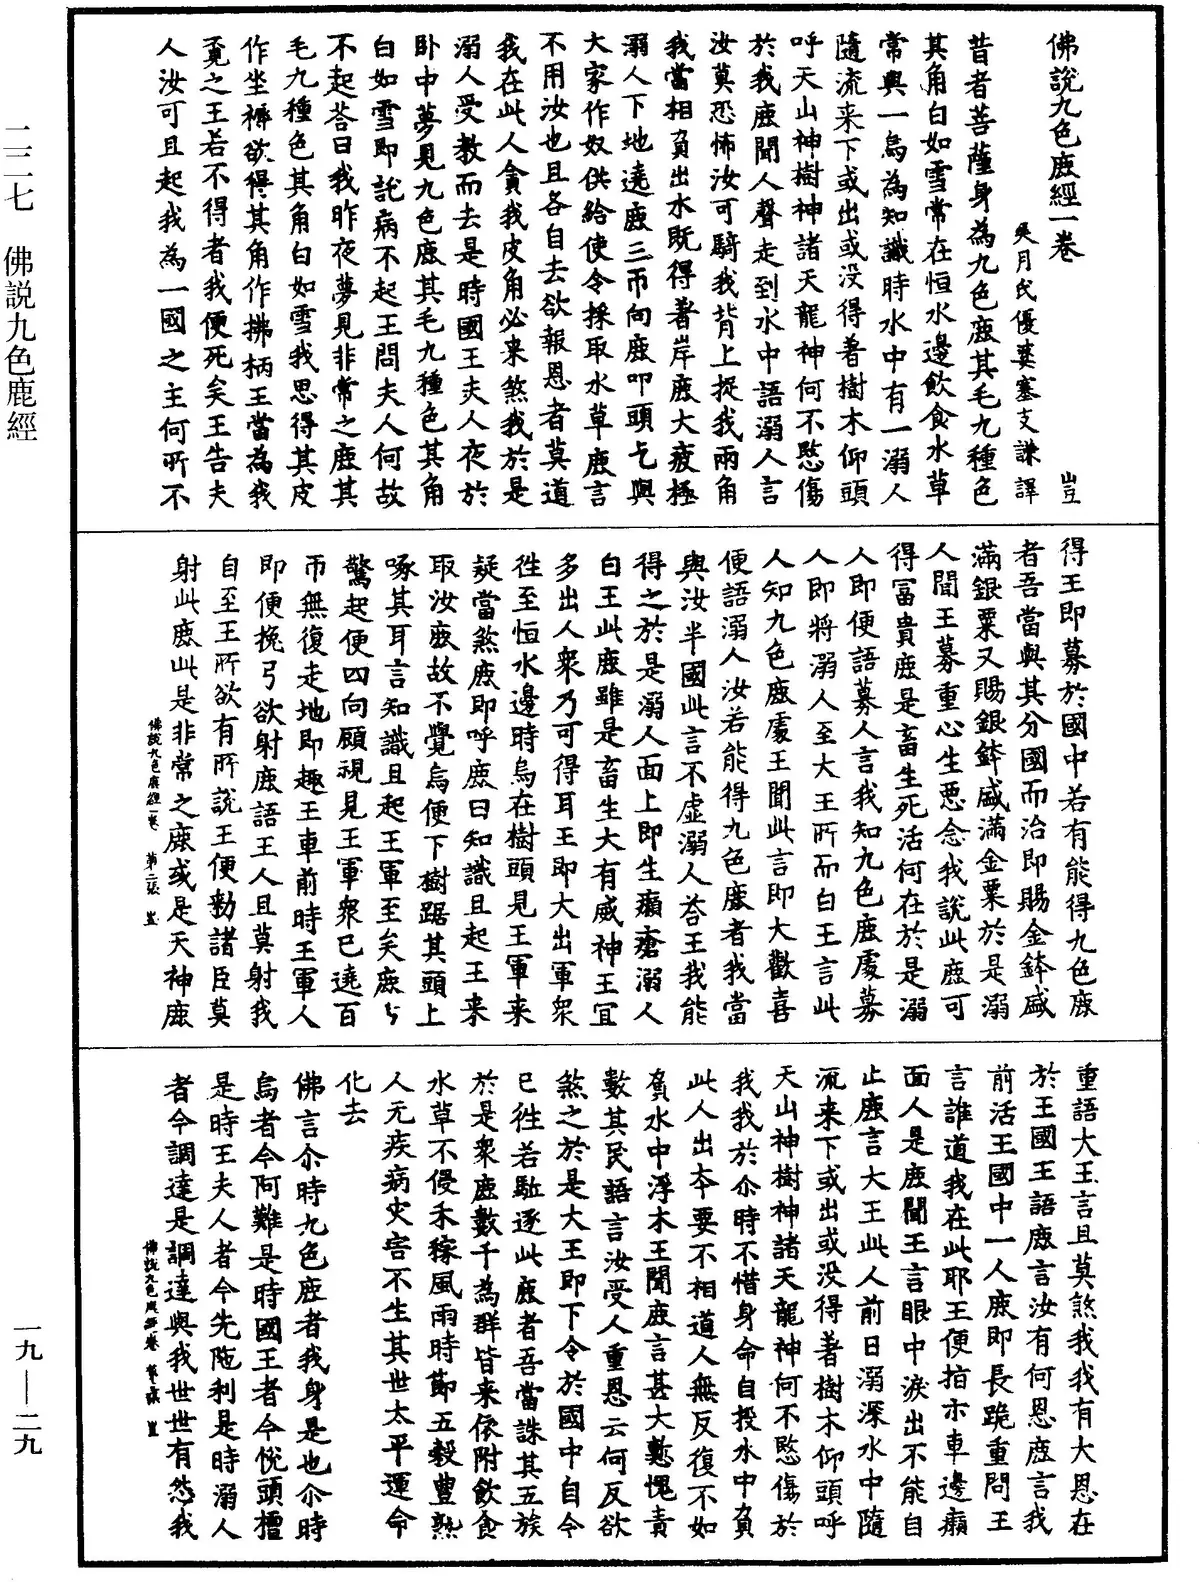 佛說九色鹿經一卷
豈
吳月氏優婆塞支謙譯
昔者菩薩身為九色鹿其毛九種色
其角白如雪常在恒水邊飲食水草
常與一烏為知識時水中有一溺人
隨流来下或出或没得著樹木仰頭
呼天山神樹神諸天龍神何不愍傷
於我鹿聞人聲走到水中語溺人言
汝莫恐怖汝可騎我背上捉我兩角
我當相負出水既得著岸鹿大疲極
溺人下地遶鹿三帀向鹿叩頭乞與
大家作奴供給使令採取水草鹿言
不用汝也且各自去欲報恩者莫道
我在此人貪我皮角必来煞我於是
溺人受教而去是時國王夫人夜於
卧中夢見九色鹿其毛九種色其角
白如雪即託病不起王問夫人何故
不起荅曰我昨夜夢見非常之鹿其
毛九種色其角白如雪我思得其皮
作坐褥欲得其角作拂柄王當為我
覓之王若不得者我便死矣王告夫
人汝可且起我為一國之主何所不
得王即募於國中若有能得九色鹿
者吾當與其分國而治即賜金鉢盛
滿銀粟又賜銀鉢盛滿金粟於是溺
人聞王募重心生惡念我說此鹿可
得冨貴鹿是畜生死活何在於是溺
人即便語募人言我知九色鹿處募
人即將溺人至大王所而白王言此
人知九色鹿處王聞此言即大歡喜
便語溺人汝若能得九色鹿者我當
與汝半國此言不虛溺人荅王我能
得之於是溺人面上即生癩瘡溺人
白王此鹿雖是畜生大有威神王宜
多出人衆乃可得耳王即大出軍衆
徃至恒水邊時烏在樹頭見王軍来
疑當煞鹿即呼鹿曰知識且起王来
取汝鹿故不覺烏便下樹踞其頭上
啄其耳言知識且起王軍至矣鹿方
驚起便四向顧視見王軍衆已遶百
帀無復走地即趣王車前時王軍人
即便挽弓欲射鹿語王人且莫射我
自至王所欲有所說王便勑諸臣莫
射此鹿此是非常之鹿或是天神鹿
佛說九色鹿經一卷 第二張 豈
重語大王言且莫煞我我有大恩在
於王國王語鹿言汝有何恩鹿言我
前活王國中一人鹿即長跪重問王
言誰道我在此耶王便指示車邊癩
面人是鹿聞王言眼中淚出不能自
止鹿言大王此人前日溺深水中隨
流来下或出或没得著樹木仰頭呼
天山神樹神諸天龍神何不愍傷於
我我於尒時不惜身命自投水中負
此人出夲要不相道人無反復不如
負水中浮木王聞鹿言甚大慙愧責
數其民語言汝受人重恩云何反欲
煞之於是大王即下令於國中自今
已徃若駈逐此鹿者吾當誅其五族
於是衆鹿數千為群皆来依附飲食
水草不侵禾稼風雨時節五穀豊熟
人无疾病灾害不生其世太平運命
化去
佛言尒時九色鹿者我身是也尒時
烏者今阿難是時國王者今恱頭檀
是時王夫人者今先陁利是時溺人
者今調達是調達與我世世有怨我
二二七 佛説九色鹿經
一九——二九